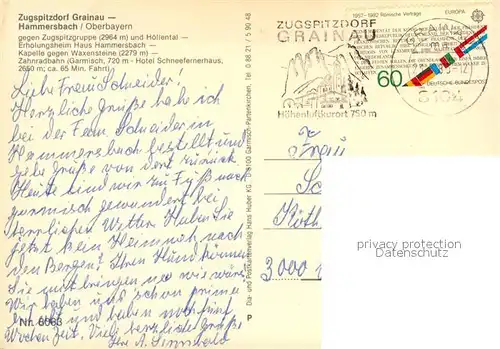 Zugspitzdorf Grainau —
Hammersbach / Oberbayern
gegen Zugspitzgruppe (2964 m) und Höllental —
Erholungsheim Haus Hammersbach —
Kapelle gegen Waxensteine (2279 m) —
Zahnradbahn (Garmisch, 720 m - Hotel Schneefernerhaus,
2650 m; ca. 65 Min. Fahrt)
Liebe Frau Schneider!
Herzliche Grüße habe ich
bei der Fam. Schneider in
Hammersbach bestellt und
gebe Grüße von dort zurück
Heute sind wir zu Fuß nach
Garmisch gewandert bei
herrlichen Wetter. Haben Sie
jetzt kein Heimweh nach
den Bergen? Ihren Hund können
Sie mitbringen
Wir haben uns schon prima
erholt und haben noch fünf
Wochen Zeit. Viele herzliche Grüße
Ihre A.
Nr. 6063
Dia- und Postkartenverlag Hans Huber KG, D-8100 Garmisch-Partenkirchen, Tel. 0 88 21 / 5 90 48
P
ZUGSPITZDORF
GRAINAU
Höhenluftkurort 750 m
1957-1982 Römische Verträge
EUROPA
60
DEUTSCHE BUNDESPOST
8104
Frau
3000
privacy protection
Datenschutz